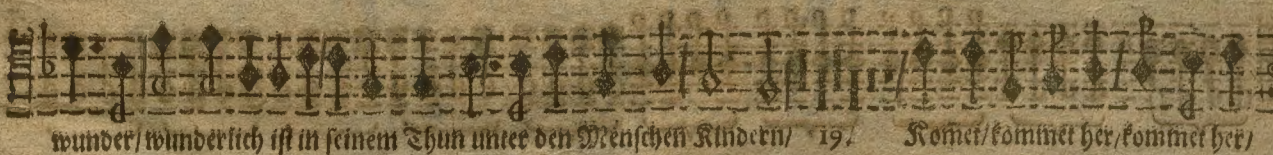 wunder/wunderlich ist in seinem Thun unter den Menschen Kindern/ 19. Komet/kommet her/kommet her/